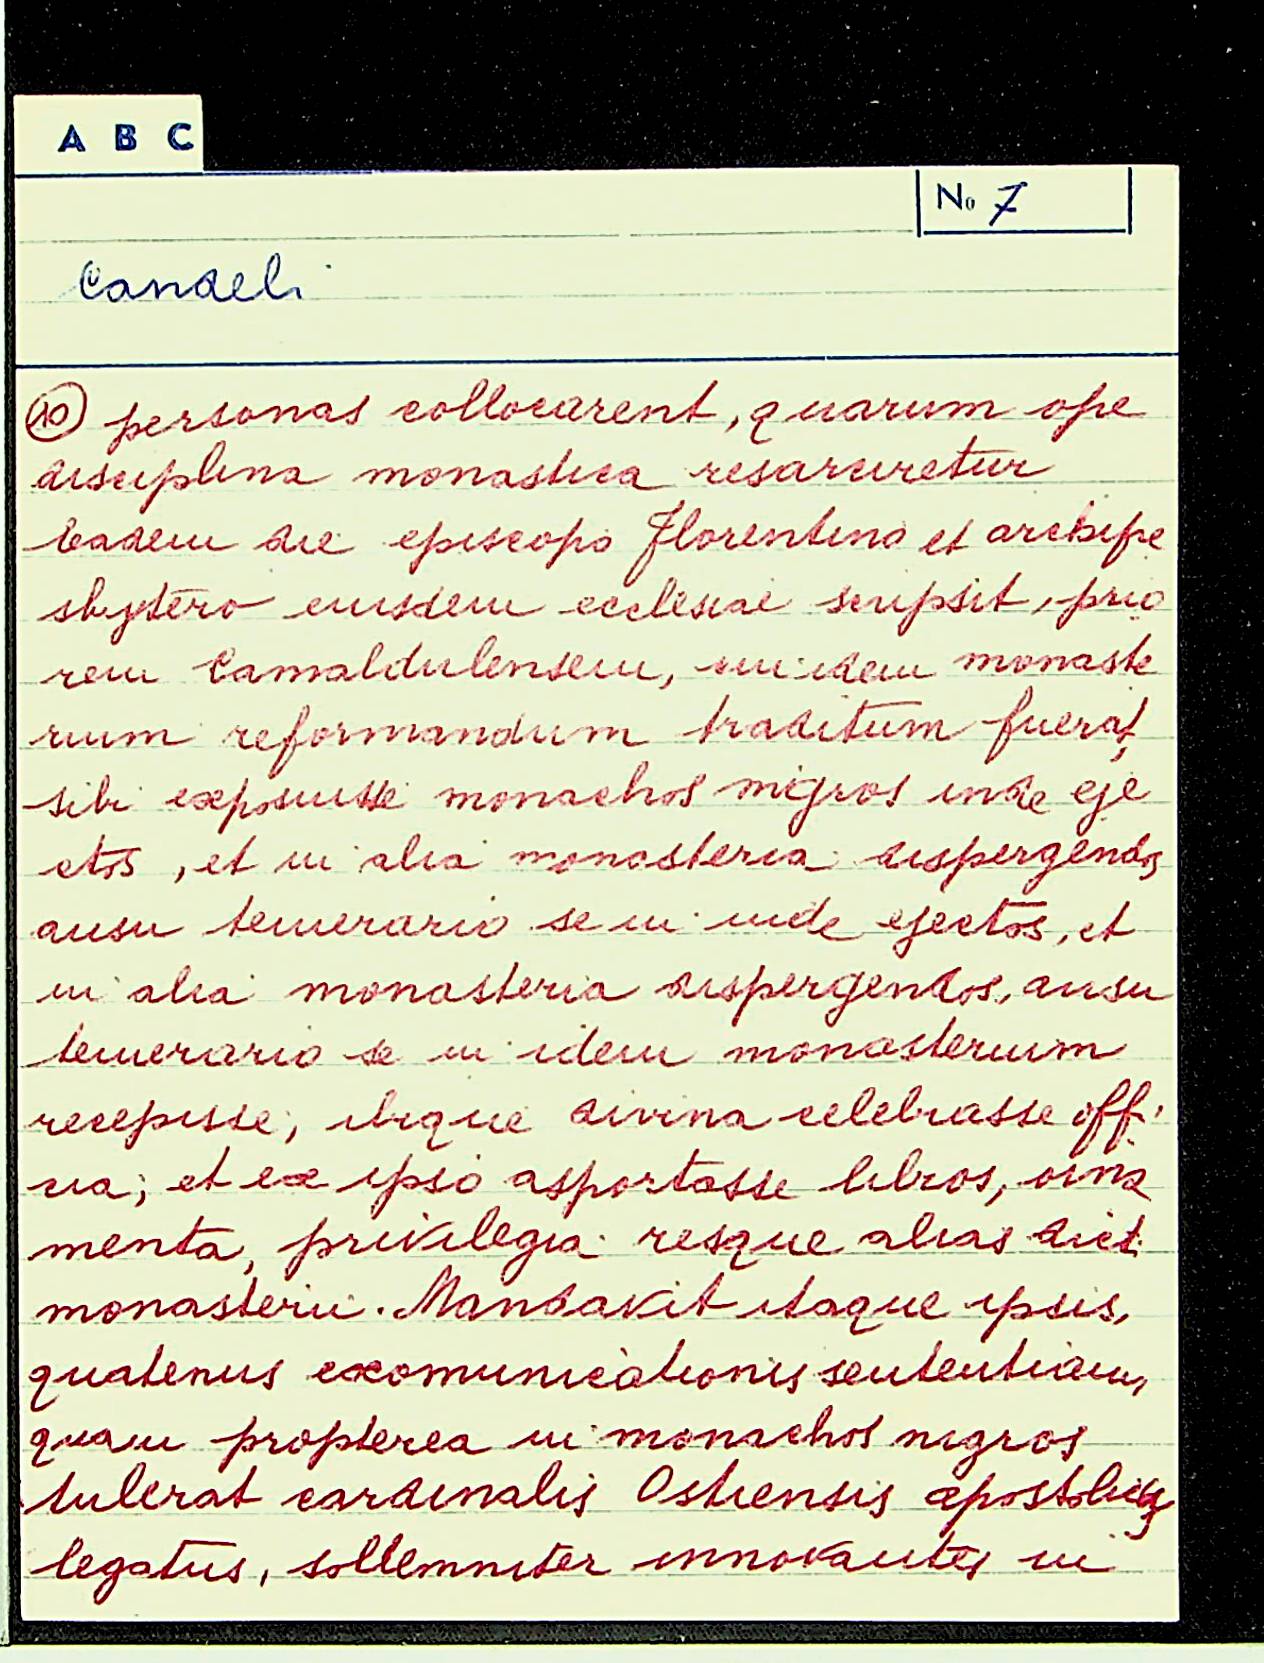 A B C
No 7
Candeli
10 personas collocarent, quarum ope
disciplina monastica resarciretur
Eadem die episcopo Florentino et archipre
sbytero eiusdem ecclesiae scripsit, prio
rem Camaldulensem, cui idem monaste
rium reformandum traditum fuerat,
sibi exposuisse monachos nigros inde eje
ctos, et in alia monasteria dispergendos,
ausu temerario se in inde ejectos, et
in alia monasteria dispergendos, ausu
temerario se in idem monasterium
recepisse, ibique divina celebrasse offi
cia; et ex ipso asportasse libros, orna
menta, privilegia resque alias dicti
monasterii. Mandavit itaque ipsis,
quatenus excomunicationis sententiam,
quam propterea in monachos nigros
tulerat cardinalis Ostiensis apostolicus
legatus, sollemniter innovantes in